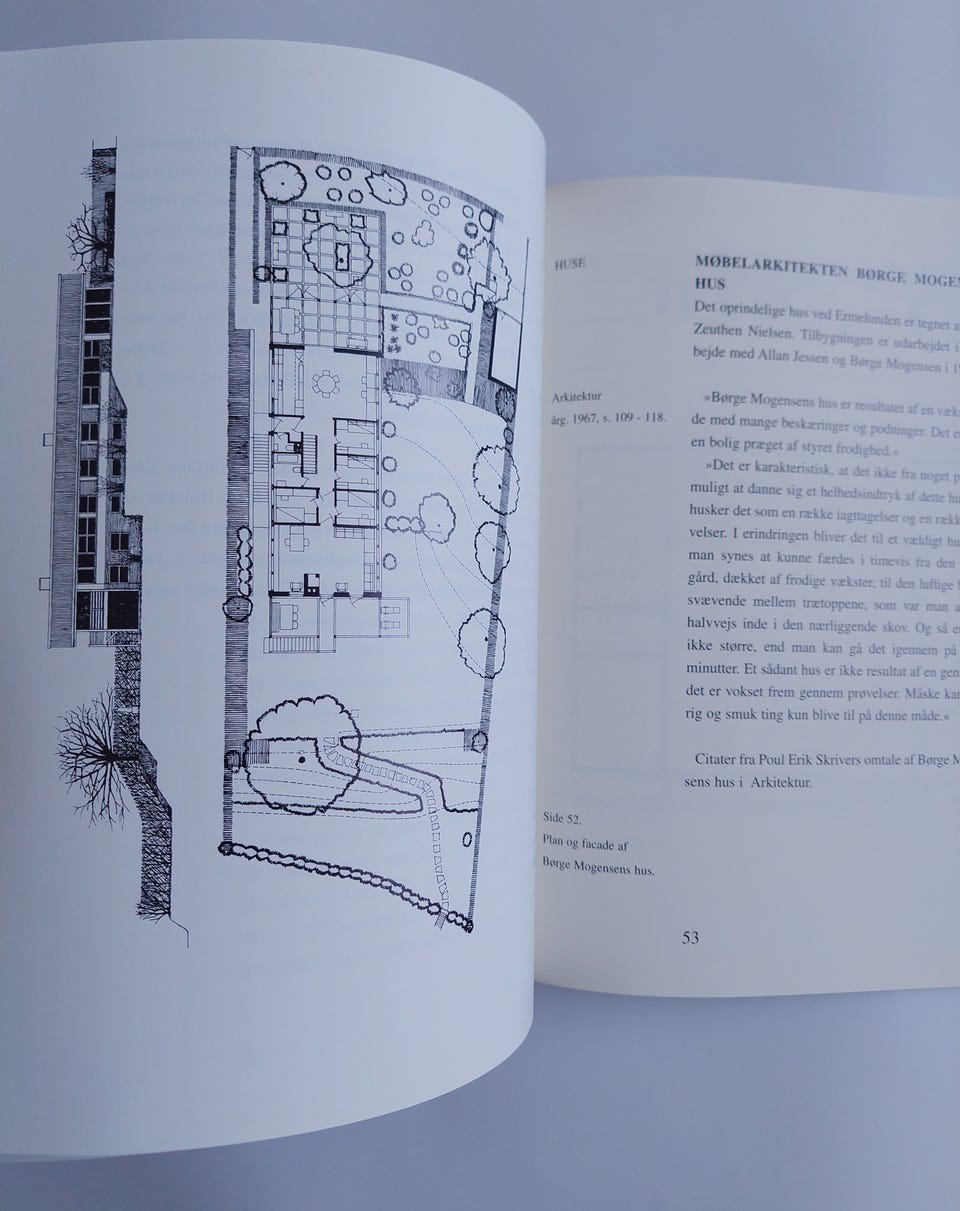 HUSE
Arkitektur
årg. 1967, s. 109 - 118.
MØBELARKITEKTEN BØRGE
HUS
Det oprindelige hus ved Ermelunden er tegnet
Zeuthen Nielsen. Tilbygningen er udarbejdet i
bejde med Allan Jessen og Børge Mogensen i
»Børge Mogensens hus er resultatet af en
de med mange beskæringer og podninger. Det
en bolig præget af styret frodighed.«
»Det er karakteristisk, at det ikke fra noget
muligt at danne sig et helhedsindtryk af dette
husker det som en række iagttagelser og en
velser. I erindringen bliver det til et vældigt
man synes at kunne færdes i timevis fra den
gård, dækket af frodige vækster, til den luftige
svævende mellem trætoppene, som var man
halvvejs inde i den nærliggende skov. Og så
ikke større, end man kan gå det igennem på
minutter. Et sådant hus er ikke resultat af en
det er vokset frem gennem prøvelser. Måske
rig og smuk ting kun blive til på denne måde.«
Citater fra Poul Erik Skrivers omtale af Børge
sens hus i Arkitektur.
Side 52.
Plan og facade af
Børge Mogensens hus.
53